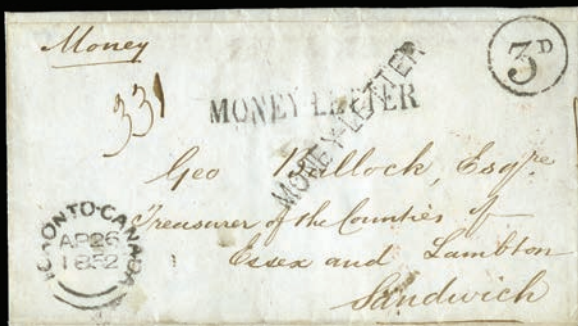 Money
3D
331
MONEY-LETTER
MONEY-LETTER
Geo Bullock, Esqre
Treasurer of the Counties of
Essex and Lambton
Sandwich
TORONTO-CANADA
AP 26
1852